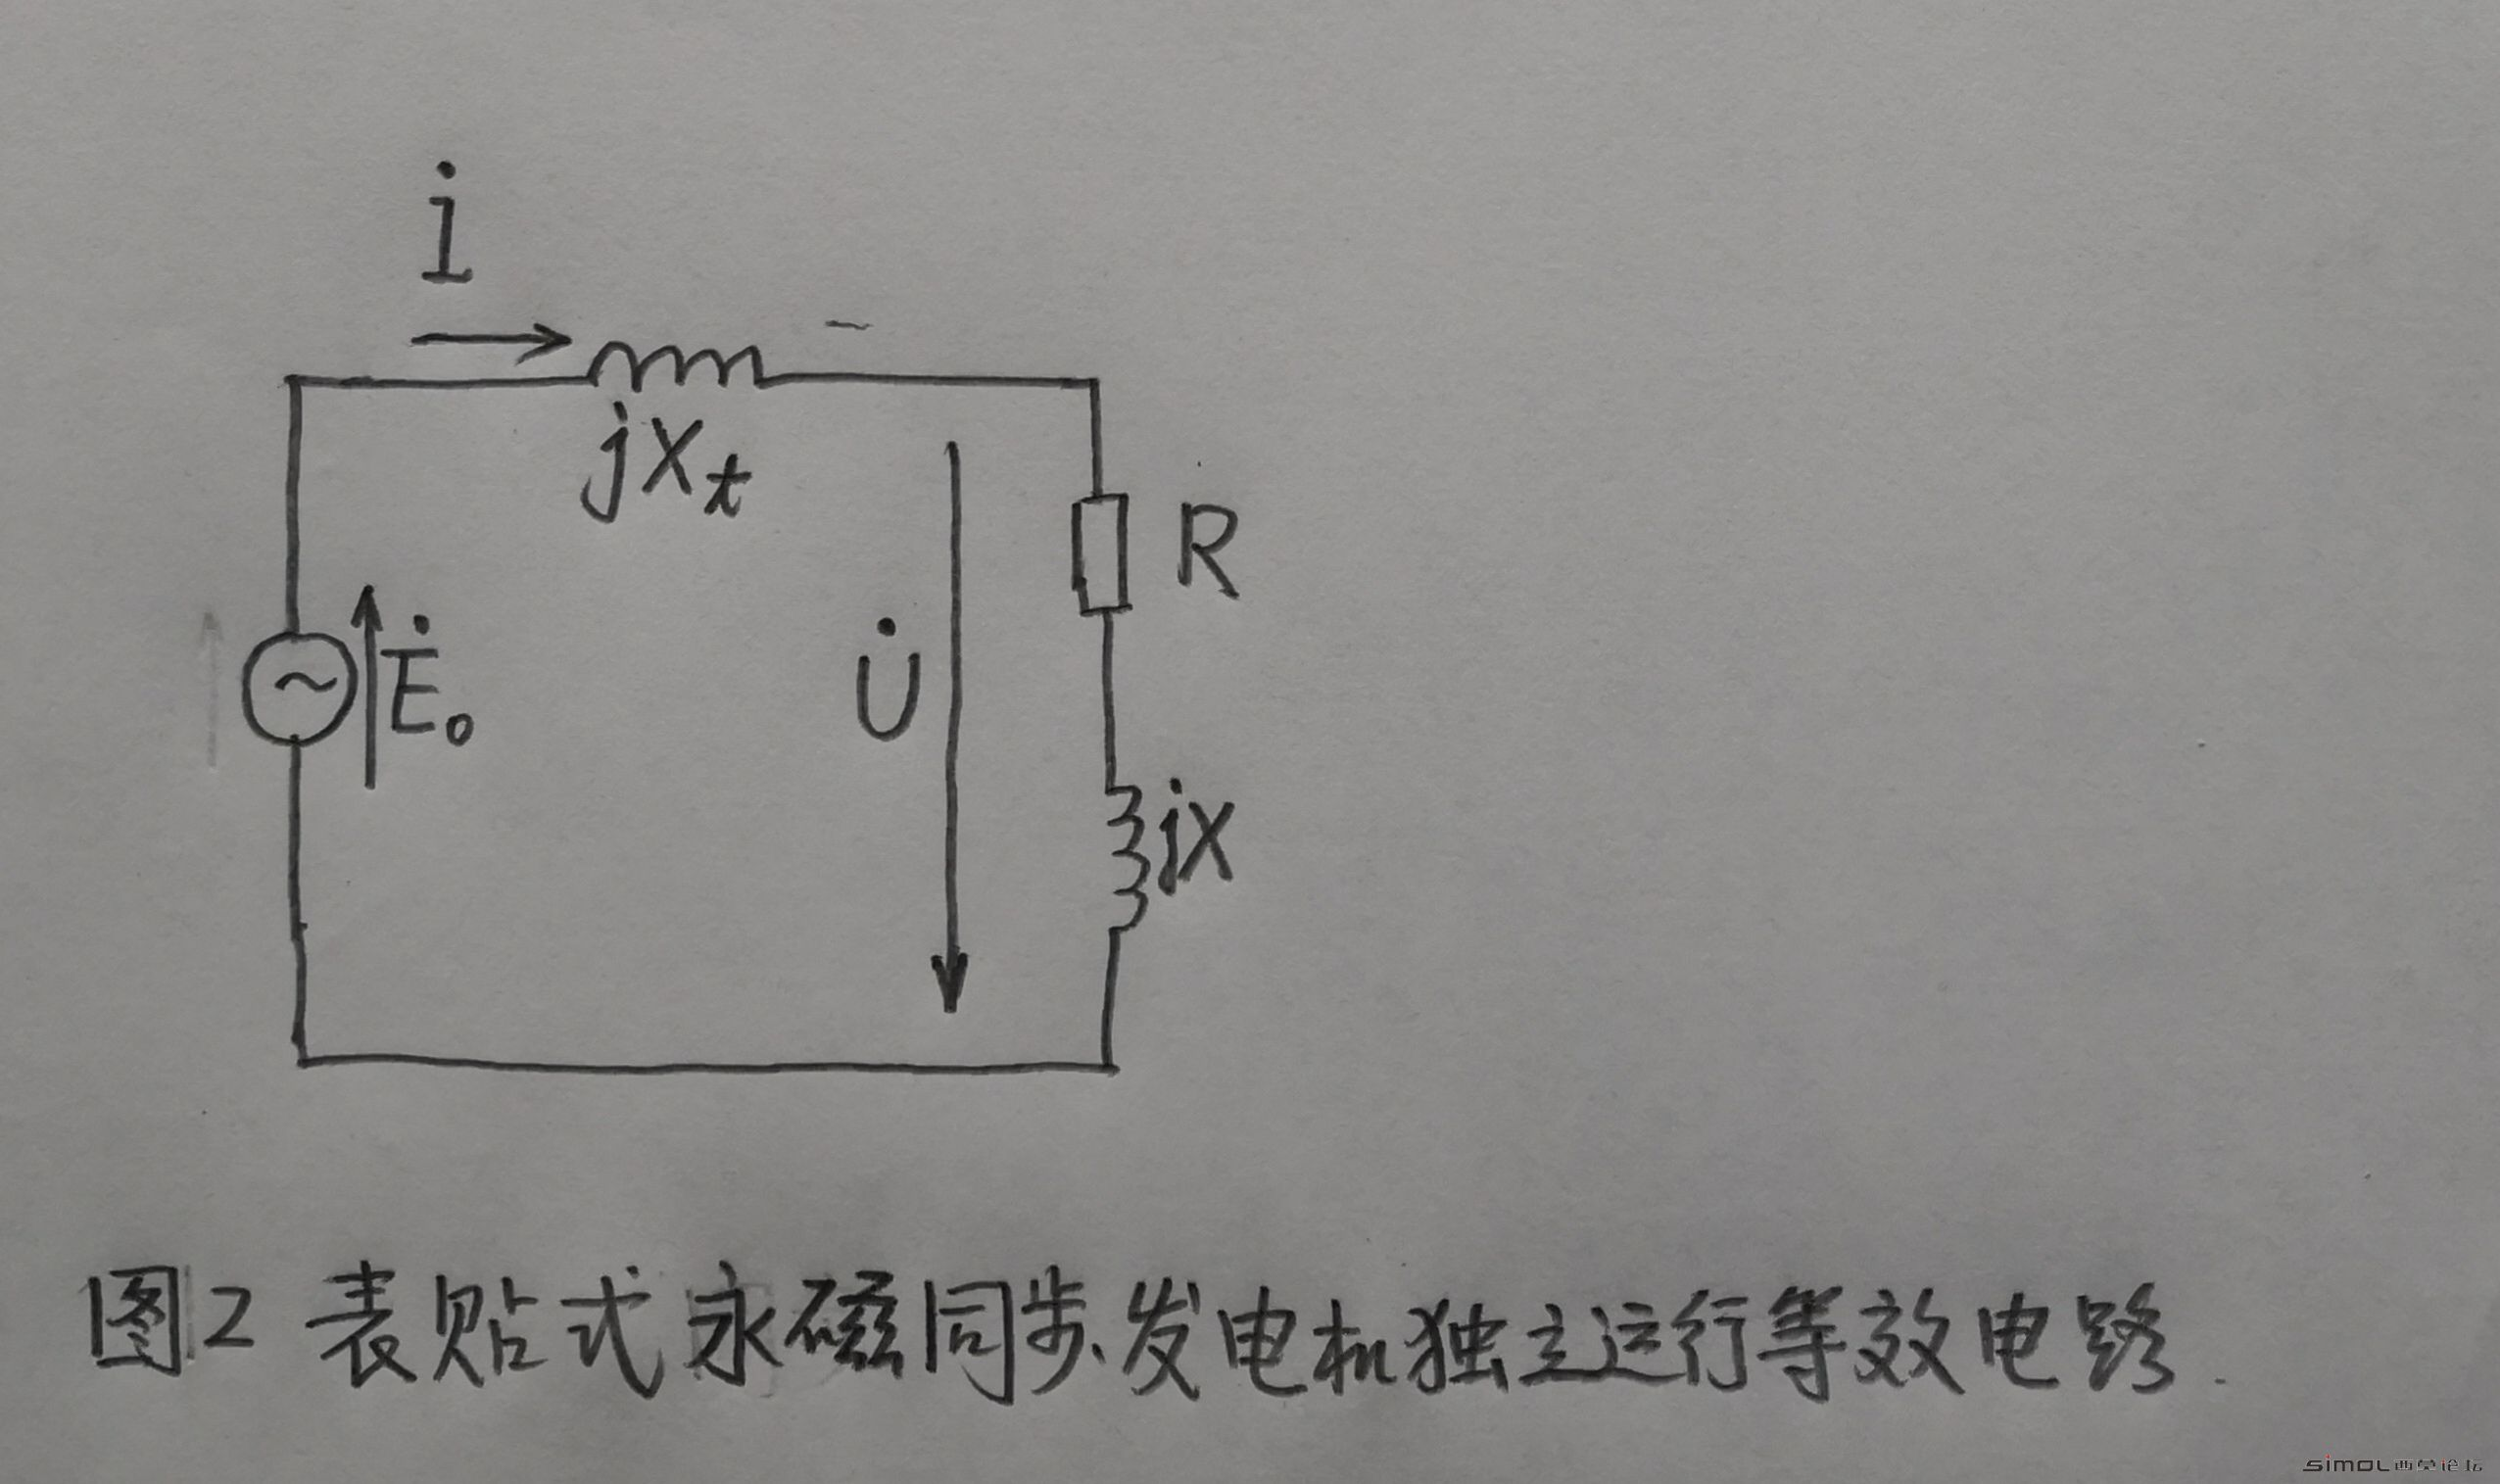 İ
jXt
R
Ė₀
U̇
jX
图2 表贴式永磁同步发电机独立运行等效电路.
simol西莫论坛